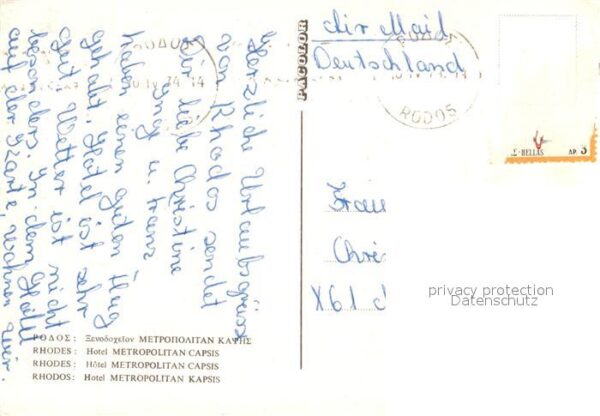 Herzliche Urlaubsgrüsse
von Rhodos sendet
Dir liebe Christine
Inge u. Franz
haben einen guten Flug
gehabt. Hotel ist sehr
gut Wetter ist nicht
besonders. In dem Hotel
auf der Karte, wohnen wir.
ΡΟΔΟΣ: Ξενοδοχεῖον ΜΕΤΡΟΠΟΛΙΤΑΝ ΚΑΨΗΣ
RHODES: Hotel METROPOLITAN CAPSIS
RHODES: Hôtel METROPOLITAN CAPSIS
RHODOS: Hotel METROPOLITAN KAPSIS
PACOLOR
Air Mail
Deutschland
RODOS
HELLAS ΔΡ. 3
Frau
Chri
X61
privacy protection
Datenschutz